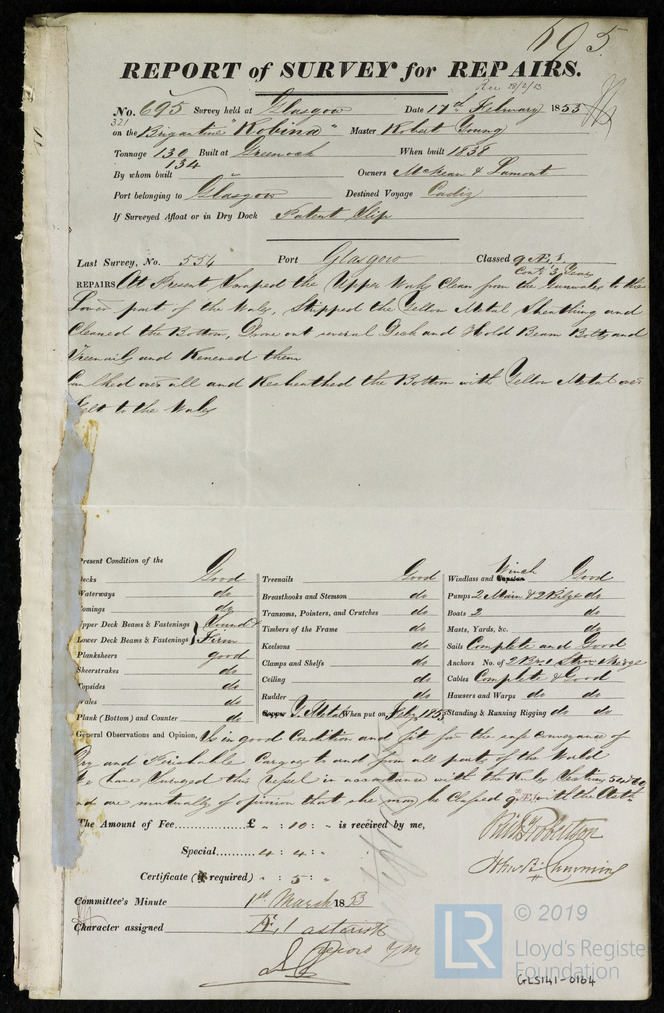 695.
REPORT of SURVEY for REPAIRS.
Rec 28/2/53
No. 695 Survey held at Glasgow Date 17th February 1853
321
on the Brigantine "Robina" Master Robert Young
Tonnage 130 Built at Greenock When built 1838
134
By whom built Owners McKean & Lamont
Port belonging to Glasgow Destined Voyage Cadiz
If Surveyed Afloat or in Dry Dock Patent Slip
Last Survey, No. 554 Port Glasgow Classed
Cont. 3 Years
REPAIRS At Present Scraped the Upper Works Clean from the Gunwales to the
Lower part of the Wales, Stripped the Yellow Metal Sheathing and
Cleaned the Bottom, Drove out several Deck and Hold Beam Bolts and
Treenails and Renewed them
Caulked over all and Resheathed the Bottom with Yellow Metal over
Felt to the Wales
Present Condition of the
Decks Good
Waterways do
Comings do
Upper Deck Beams & Fastenings Sound &
Lower Deck Beams & Fastenings Firm
Planksheers good
Sheerstrakes do
Topsides do
Wales do
Plank (Bottom) and Counter do
Treenails Good
Breasthooks and Stemson do
Transoms, Pointers, and Crutches do
Timbers of the Frame do
Keelsons do
Clamps and Shelfs do
Ceiling do
Rudder do
Copper Y. Metal When put on Feby 1853
Winch
Windlass and Capstan Good
Pumps 2 Main & 2 Bilge do
Boats 2 do
Masts, Yards, &c. do
Sails Complete and Good
Anchors No. of 2 Br. 1 Strm
Cables Complete & Good
Hawsers and Warps do do
Standing & Running Rigging do do
General Observations and Opinion, Is in good Condition and fit for the safe conveyance of
Dry and Perishable Cargoes to and from all parts of the World
We have Surveyed this vessel in accordance with the Rules Section
and are mutually of opinion that she may be Classed with the
The Amount of Fee £ " : 10 : " is received by me,
Robertson
Special 4 : 4 : "
John Cumming
Certificate (if required) " : 5 : "
Committee's Minute 1st March 1853
Character assigned Æ 1 asterisk
© 2019
LR
Lloyd's Register
Foundation
GLS141-0164